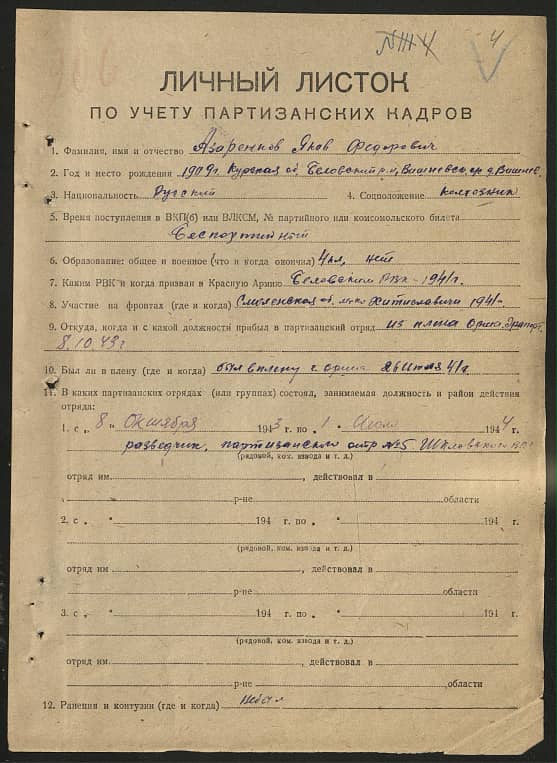 4
ЛИЧНЫЙ ЛИСТОК
ПО УЧЕТУ ПАРТИЗАНСКИХ КАДРОВ
1. Фамилия, имя и отчество Азаренков Яков Федорович
2. Год и место рождения 1909 г. Курская об. Беловский р-н, Вишневск, ср д. Вишнев.
3. Национальность Русский 4. Соцположение колхозник
5. Время поступления в ВКП(б) или ВЛКСМ, № партийного или комсомольского билета
Беспартийный
6. Образование: общее и военное (что и когда окончил) 4 кл, нет
7. Каким РВК и когда призван в Красную Армию Беловским РВК - 1941 г.
8. Участие на фронтах (где и когда) Смоленская об. Хитиславичи 1941-
9. Откуда, когда и с какой должности прибыл в партизанский отряд из плена Орша.
8.10.43 г
10. Был ли в плену (где и когда) был в плену г. Орша 41 г.
11. В каких партизанских отрядах (или группах) состоял, занимаемая должность и район действия
отряда:
1. с „ 8 " Октября 1943 г. по „ 1 " Июля 1944 г.
разведчик, партизанского отр №5. Шкловского
(рядовой, ком. взвода и т. д.)
отряд им. , действовал в
р-не области
2. с „ " 194 г. по „ " 194 г.
(рядовой, ком. взвода и т. д.)
отряд им. , действовал в
р-не области
3. с „ " 194 г. по „ " 194 г.
(рядовой, ком. взвода и т. д.)
отряд им. , действовал в
р-не ,области
12. Ранения и контузии (где и когда) небыл